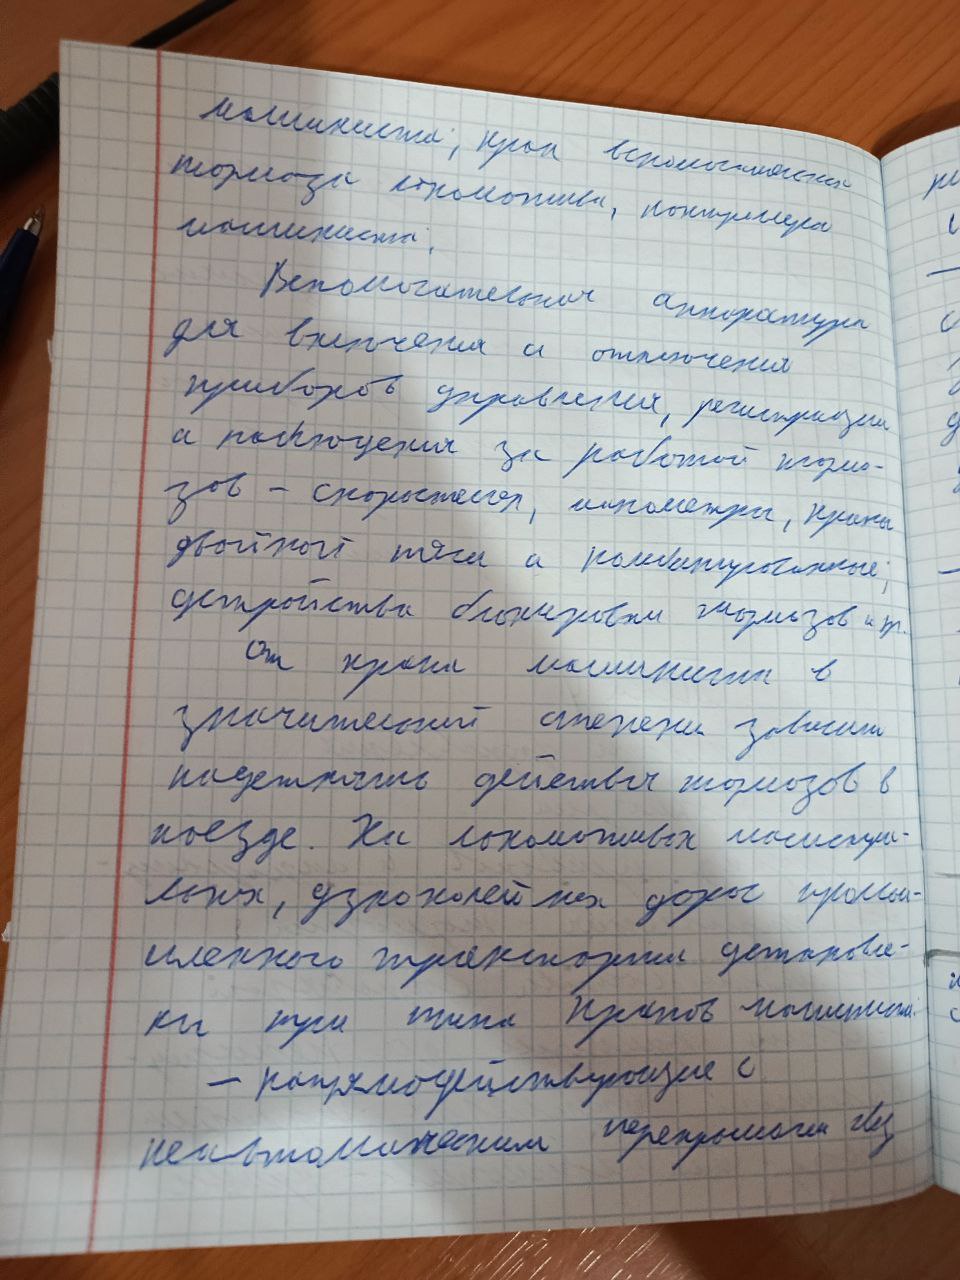 машиниста; кран вспомогательного
тормоза локомотива, контроллера
машиниста;
Вспомогательная аппаратура
для включения и отключения
приборов управления, регистрации
и наблюдения за работой тормо-
зов - скоростемер, манометры, краны
двойной тяги и комбинированные;
устройства блокировки тормозов и т.
От крана машиниста в
значительной степени зависит
надежность действия тормозов в
поезде. На локомотивах магистра-
льных, узкоколейных дорог промы-
шленного транспорта установле-
ны три типа кранов машиниста:
- непрямодействующие с
неавтоматическим перекрышами без